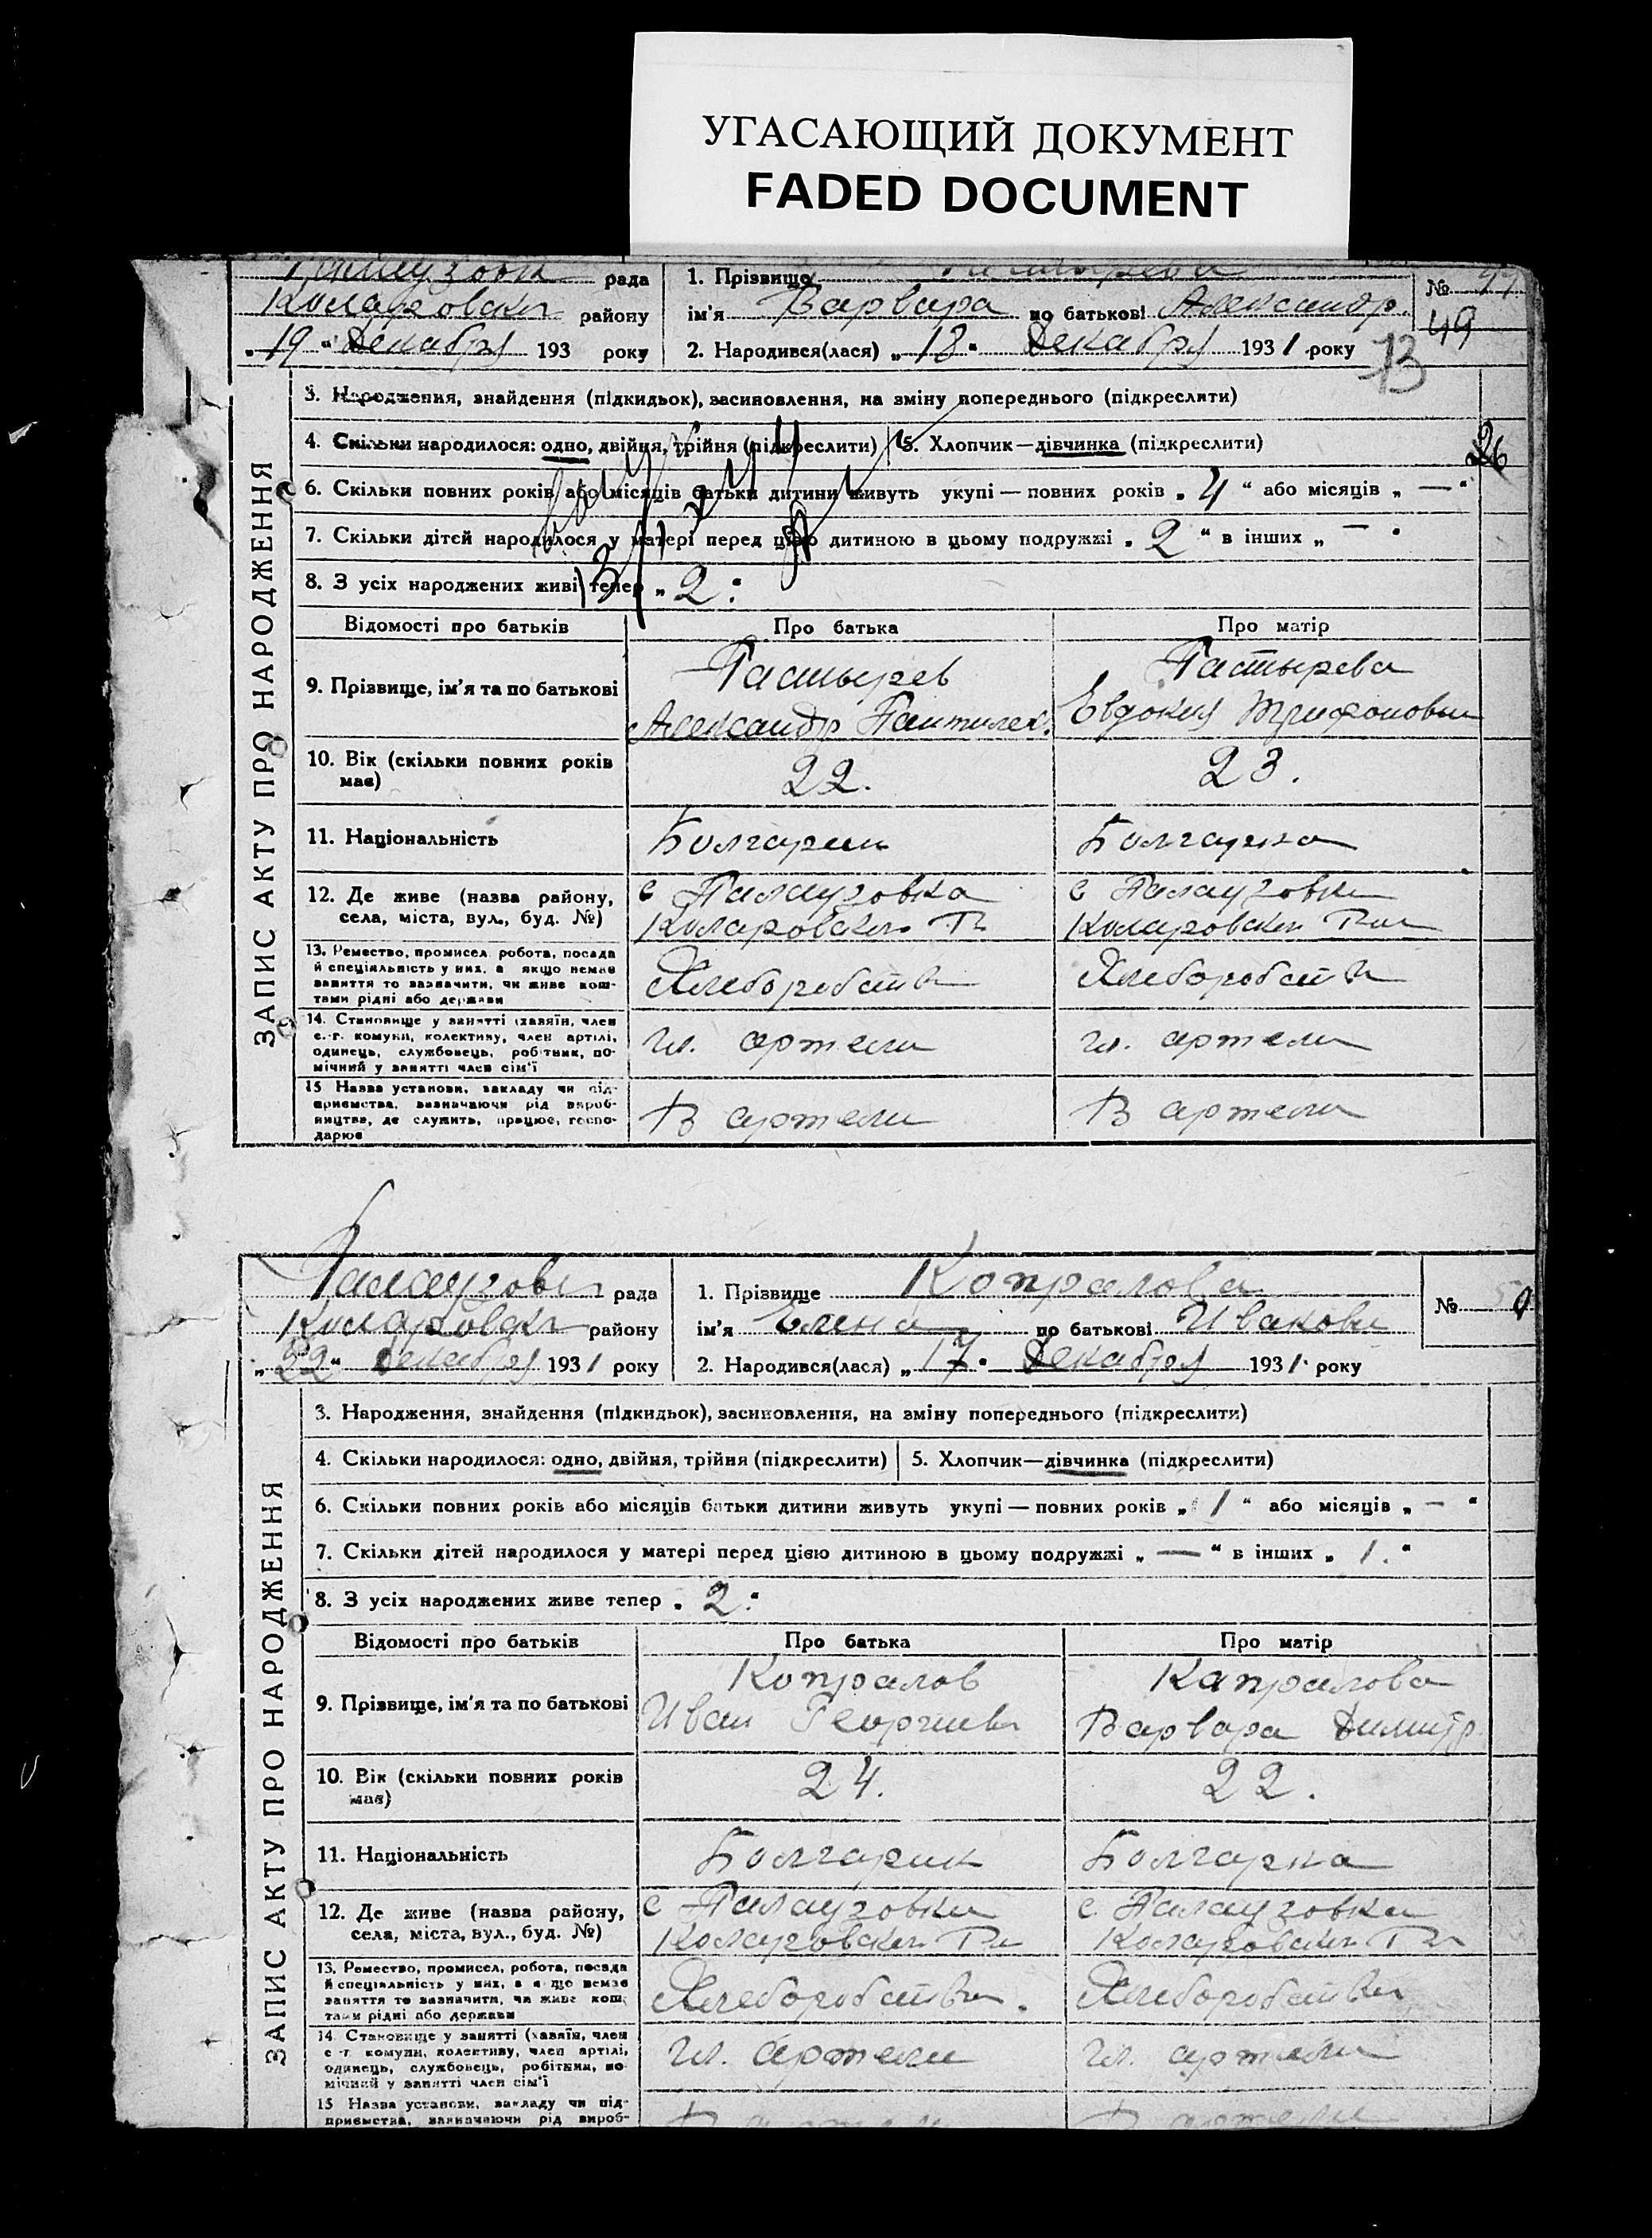 УГАСАЮЩИЙ ДОКУМЕНТ
FADED DOCUMENT
рада
районуу
„19“ Декабря 193 року
1. Прізвище
ім'я Варвара по батькові Александр.
2. Народився(лася) „18“ Декабря 1931 року
№ 49
49
13
ЗАПИС АКТУ ПРО НАРОДЖЕННЯ
3. Народження, знайдення (підкидьок), засиновлення, на зміну попереднього (підкреслити)
4. Скільки народилося: одно, двійня, трійня (підкреслити)
5. Хлопчик—дівчинка (підкреслити)
26
6. Скільки повних років або місяців батьки дитини живуть укупі — повних років „4“ або місяців „—“
7. Скільки дітей народилося у матері перед цією дитиною в цьому подружжі „2“ в інших „—“
8. З усіх народжених живі тепер „2“
Відомості про батьків
Про батька
Про матір
9. Прізвище, ім'я та по батькові
Пастырев
Александр Пантилек.
Пастырева
Евдокия Трифоновн
10. Вік (скільки повних років має)
22.
23.
11. Національність
Болгарин
Болгарка
12. Де живе (назва району,
села, міста, вул., буд. №)
с Палаузовка
Коларовского Р-н
с Палаузовка
Коларовского Р-на
13. Ремество, промисел, робота, посада
й спеціяльність у них, а якщо немає
заняття то зазначити, чи живе кош-
тами рідні або держави
Хлеборобство
Хлеборобство
14. Становище у занятті (хазяїн, член
с.-г. комуни, колективу, член артілі,
одинець, службовець, робітник, по-
мічний у занятті член сім'ї
чл. артели
чл. артели
15 Назва установи, закладу чи під-
приємства, зазначаючи рід вироб-
ництва, де служить, працює, госпо-
дарює
В артели
В артели
Палаузовк рада
Коларовск району
„22“ Декабря 1931 року
1. Прізвище Копралова
ім'я Елена по батькові Иванова
2. Народився(лася) „17“ Декабря 1931 року
№ 50
ЗАПИС АКТУ ПРО НАРОДЖЕННЯ
3. Народження, знайдення (підкидьок), засиновлення, на зміну попереднього (підкреслити)
4. Скільки народилося: одно, двійня, трійня (підкреслити)
5. Хлопчик—дівчинка (підкреслити)
6. Скільки повних років або місяців батьки дитини живуть укупі — повних років „1“ або місяців „—“
7. Скільки дітей народилося у матері перед цією дитиною в цьому подружжі „—“ в інших „1.“
8. З усіх народжених живе тепер „2“
Відомості про батьків
Про батька
Про матір
9. Прізвище, ім'я та по батькові
Копралов
Иван Георгиев
Капралова
Варвара Димитр.
10. Вік (скільки повних років
має)
24.
22.
11. Національність
Болгарин
Болгарка
12. Де живе (назва району,
села, міста, вул., буд. №)
с Палаузовка
Коларовского Р-н
с Палаузовка
Коларовского Р-н
13. Ремество, промисел, робота, посада
й спеціяльність у них, а якщо немає
заняття то зазначити, чи живе кош-
тами рідні або держави
Хлеборобство.
Хлеборобство
14. Становище у занятті (хазяїн, член
с.-г. комуни, колективу, член артілі,
одинець, службовець, робітник, по-
мічний у занятті член сім'ї
чл. артели
чл. артели
15 Назва установи, закладу чи під-
приємства, зазначаючи рід вироб-
В артели